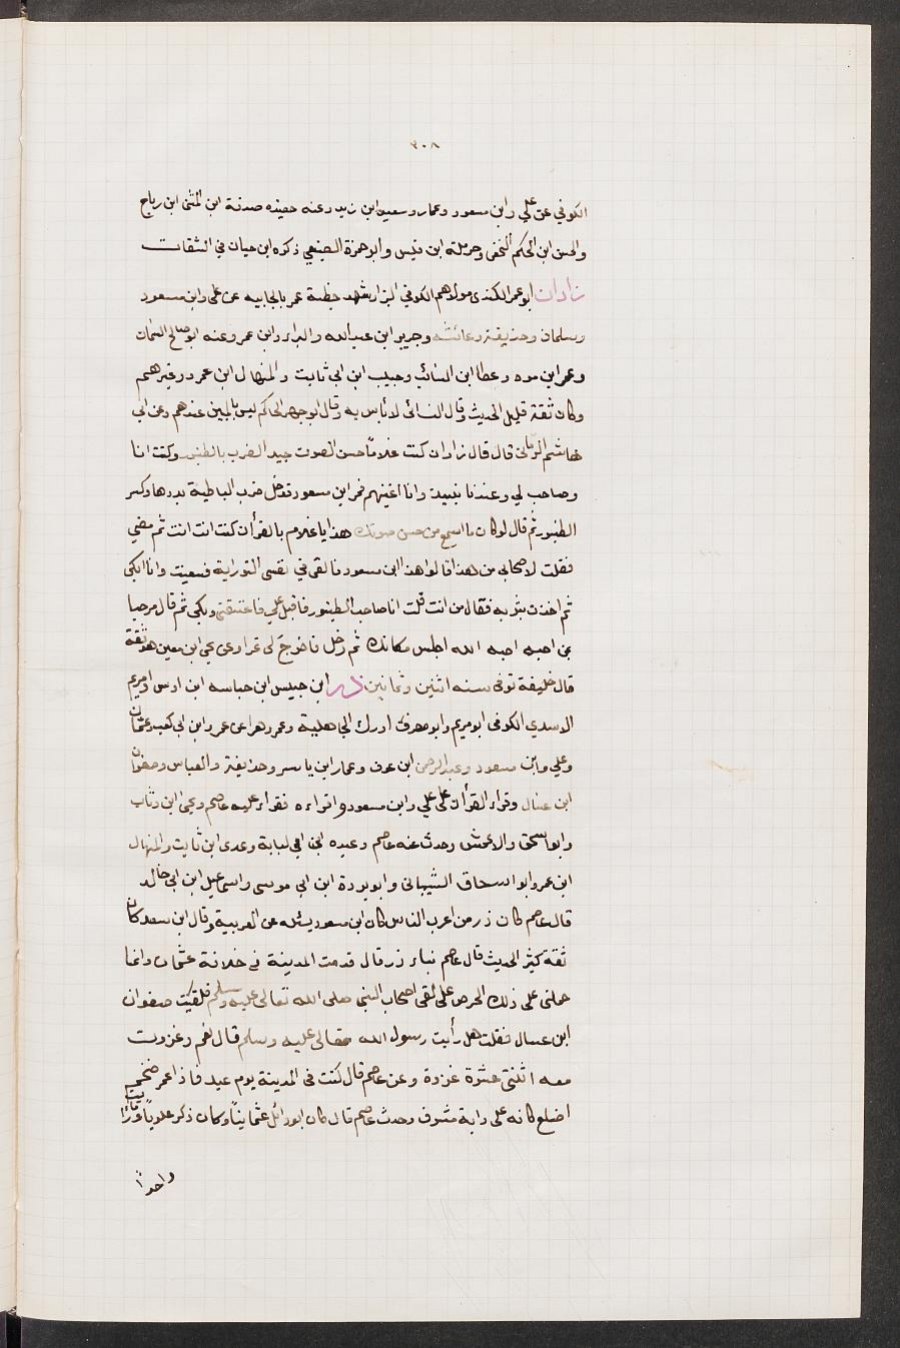 ٣٠٨
الكوفي عن علي وابن مسعود وعمار وسعيد ابن زيد وعنه حفيده صدقة ابن المثنى ابن رباح
والحسن ابن الحكم النخعي وحرملة ابن قيس وابو حمزة الضبعي ذكره ابن حبان في الثقات
زادان ابو عمر الكندي مولاهم الكوفي البزار شهد خطبة عمر بالجابيه عن علي وابن مسعود
وسلمان وحذيفة وعائشه وجرير ابن عبد الله والبراء وابن عمر وعنه ابو صالح السمان
وعمر ابن مره وعطا ابن السائب وحبيب ابن ابي ثابت والمنهال ابن عمرو وغيرهم
وكان ثقة قليل الحديث وقال النسائي لا بأس به وقال ابو الحاكم ليس بالمتين عندهم وعن ابي
هاشم الرماني قال قال زادان كنت غلامًا حسن الصوت جيد الضرب بالطنبور وكنت انا
وصاحب لي وعندنا نبيذ وانا اغنيهم فمر ابن مسعود فدخل ضرب الباطية بددها وكسر
الطنبور ثم قال لو كان ما اسمع من حسن صوتك هذا يا غلام بالقرأن كنت انت انت ثم مضى
فقلت لاصحابي من هذا قالوا هذا ابن مسعود فالقى في نفسي التوراية فسعيت وانا ابكي
ثم اخذت بثوبه فقال من انت قلت انا صاحب الطنبور فاقبل علي فاعتنقني وبكى ثم قال مرحبا
بمن احبه الله اجلس مكانك ثم دخل فاخرج لي تمرا وعن يحيى ابن معين هو ثقة
قال خليفة توفى سنه اثنين وثمانين زر ابن حبيس ابن حباسه ابن اوس
الاسدي الكوفي ابو مريم وابو مطرف ادرك الجاهلية وعمر دهرا عن عمر وابن ابي كعب وعثمان
وعلي وابن مسعود وعبد الرحمن ابن عوف وعمار ابن ياسر وحذيفة والعباس وصفوان
ابن عسال وقراء القرأن على علي وابن مسعود واقراءه فقراء عليه عاصم ويحيى ابن وثاب
وابو اسحق والاعمش وحدث عنه عاصم وعبده ابن ابي لبابة وعدى ابن ثابت والمنهال
ابن عمرو وابو اسحاق الشيباني وابو بردة ابن ابي موسى واسمعيل ابن ابي خالد
قال عاصم كان زر من اعرب الناس كان ابن مسعود يسئله عن العربية وقال ابن سعد كان
ثقة كثير الحديث قال عاصم نباء زر قال قدمت المدينة في خلافة عثمان وانما
حملني على ذلك الحرص على لقى اصحاب النبي صلى الله تعالى عليه وسلم فلقيت صفوان
ابن عسال فقلت هل رأيت رسول الله تعالى عليه وسلم قال نعم وغزوت
معه اثنتي عشرة غزوة وعن عاصم قال كنت في المدينة يوم عيد فاذا عمر ضخم
اضلع كانه على دابة مشرف وحدث عاصم قال كان ابو وائل عثمانيًا وكان ذكر علويًا وما رأيت
واحدًا